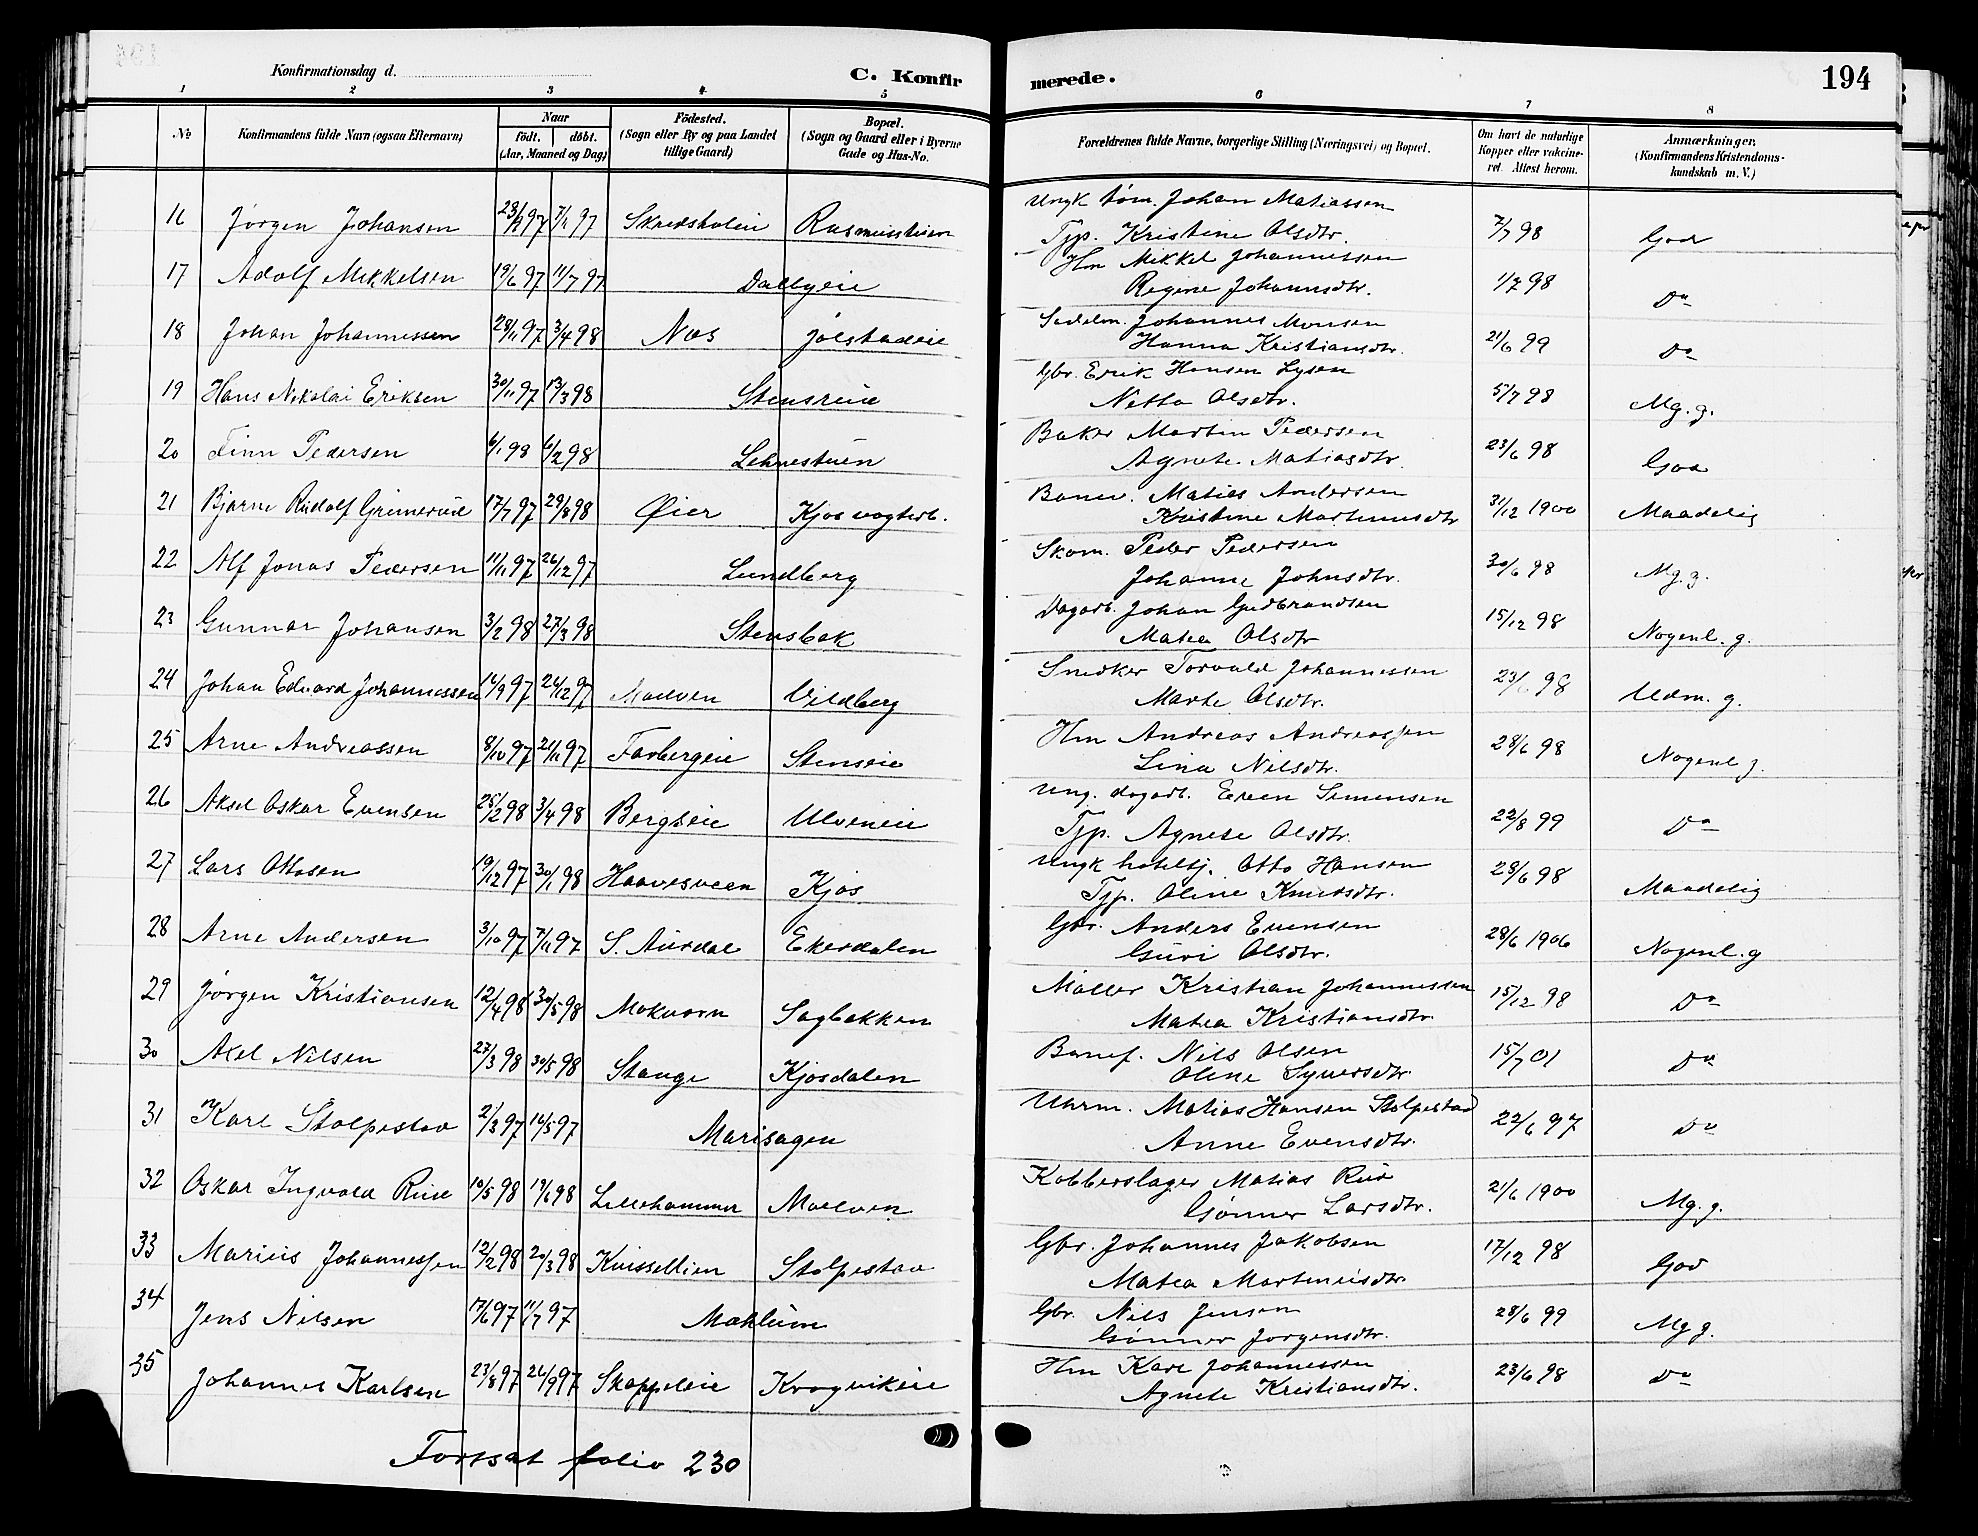 Konfirmationsdag d. C. Konfirmerede. 194
1 2 3 4 5 6 7 8
No Konfirmandens fulde Navn (ogsaa Efternavn) Naar født. døbt. (Aar, Maaned og Dag) Fødested. (Sogn eller By og paa Landet tillige Gaard) Bopæl. (Sogn og Gaard eller i Byerne Gade og Hus-No. Forældrenes fulde Navne, borgerlige Stilling (Næringsvei) og Bopæl. Om havt de naturlige Kopper eller vakcineret. Attest herom. Anmærkninger. (Konfirmandens Kristendomskundskab m. V.)
Ungk tøm. Johan Matiassen
16 Jørgen Johansen 97 97 Rasmusstuen Tjp. Kristine Olsdtr. 7/7 98 God
Hm Mikkel Johannessen
17 Adolf Mikkelsen 19/6 97 11/7 97 Dallyeie Regine Johannsdtr. 98 Do
Sadelm. Johannes Monsen
18 Johan Johannessen 28/11 97 3/4 98 Næs Jølstadeie Hanna Kristiansdtr. 21/6 99 Do
Gbr. Erik Hansen Lysen
19 Hans Nikolai Eriksen 30/11 97 13/3 98 Stensreie Netta Olsdtr. 5/7 98 Mg. g.
Baker Martin Pedersen
20 Finn Pedersen 6/1 98 6/2 98 Lehnestuen Agnete Matiasdtr. 23/6 98 God
Banev. Maties Andersen
21 Bjarne Rudolf Grimerud 17/7 97 29/8 98 Øier Kjos vogterb. Kristine Martinusdtr 31/12 1900 Maadelig
Skom. Peder Pedersen
22 Alf Jonas Pedersen 11/11 97 26/12 97 Lundberg Johanne Johnsdtr. 30/6 98 Mg. g.
Dagarb. Johan Gudbrandsen
23 Gunnar Johansen 3/2 98 27/3 98 Stensbak Matea Olsdtr 15/12 98 Nogenl. g.
Snedker Torvald Johannessen
24 Johan Edvard Johannessen 16/9 97 26/12 97 Moelven Vildberg Marte Olsdtr. 23/6 98 Udm. g.
Hm Andreas Andreassen
25 Arne Andreassen 8/10 97 21/11 97 Farbergeie Stenseie Lina Nilsdtr. 28/6 98 Nogenl g.
Ung. dagarb. Even Simensen
26 Aksel Oskar Evensen 25/2 98 3/4 98 Bergseie Ulveneie Tjp. Agnete Olsdtr. 22/8 99 Do
Ungk hoteltj. Otto Hansen
27 Lars Ottosen 19/12 97 30/1 98 Haavesveen Kjos Tjp. Oline Knudsdtr. 28/6 98 Maadelig
Gbr. Anders Evensen
28 Arne Andersen 3/10 97 7/11 97 S. Aurdal Ekerdalen Guri Olsdtr. 28/6 1906 Nogenl. g
Møller Kristian Johannessen
29 Jørgen Kristiansen 12/4 98 30/5 98 Mokvarn Sagbakken Matea Kristiansdtr. 15/12 98 Do
Banef. Nils Olsen
30 Aksel Nilsen 27/3 98 30/5 98 Stange Kjosdalen Oline Syversdtr. 15/7 01 Do
Uhrm. Matias Hansen Stolpestad
31 Karl Stolpestad 2/3 97 16/5 97 Marisagen Anne Evensdtr. 22/6 97 Do
Kobberslager Matias Rud
32 Oskar Ingvald Rud 10/5 98 19/6 98 Lillehammer Moelven Gønner Larsdtr. 21/6 1900 Mg. g.
Gbr. Johannes Jakobsen
33 Marius Johannessen 12/2 98 20/3 98 Kvissellien Stolpestad Matea Martinusdtr 17/12 98 God
Gbr. Nils Jensen
34 Jens Nilsen 17/6 97 11/7 97 Mæhlum Gønner Jørgensdtr. 28/6 99 Mg g.
Hm Karl Johannessen
35 Johannes Karlsen 23/8 97 26/9 97 Skappeleie Krogvikeie Agnete Kristiansdtr. 23/6 98 Do
Fortsat folio 230